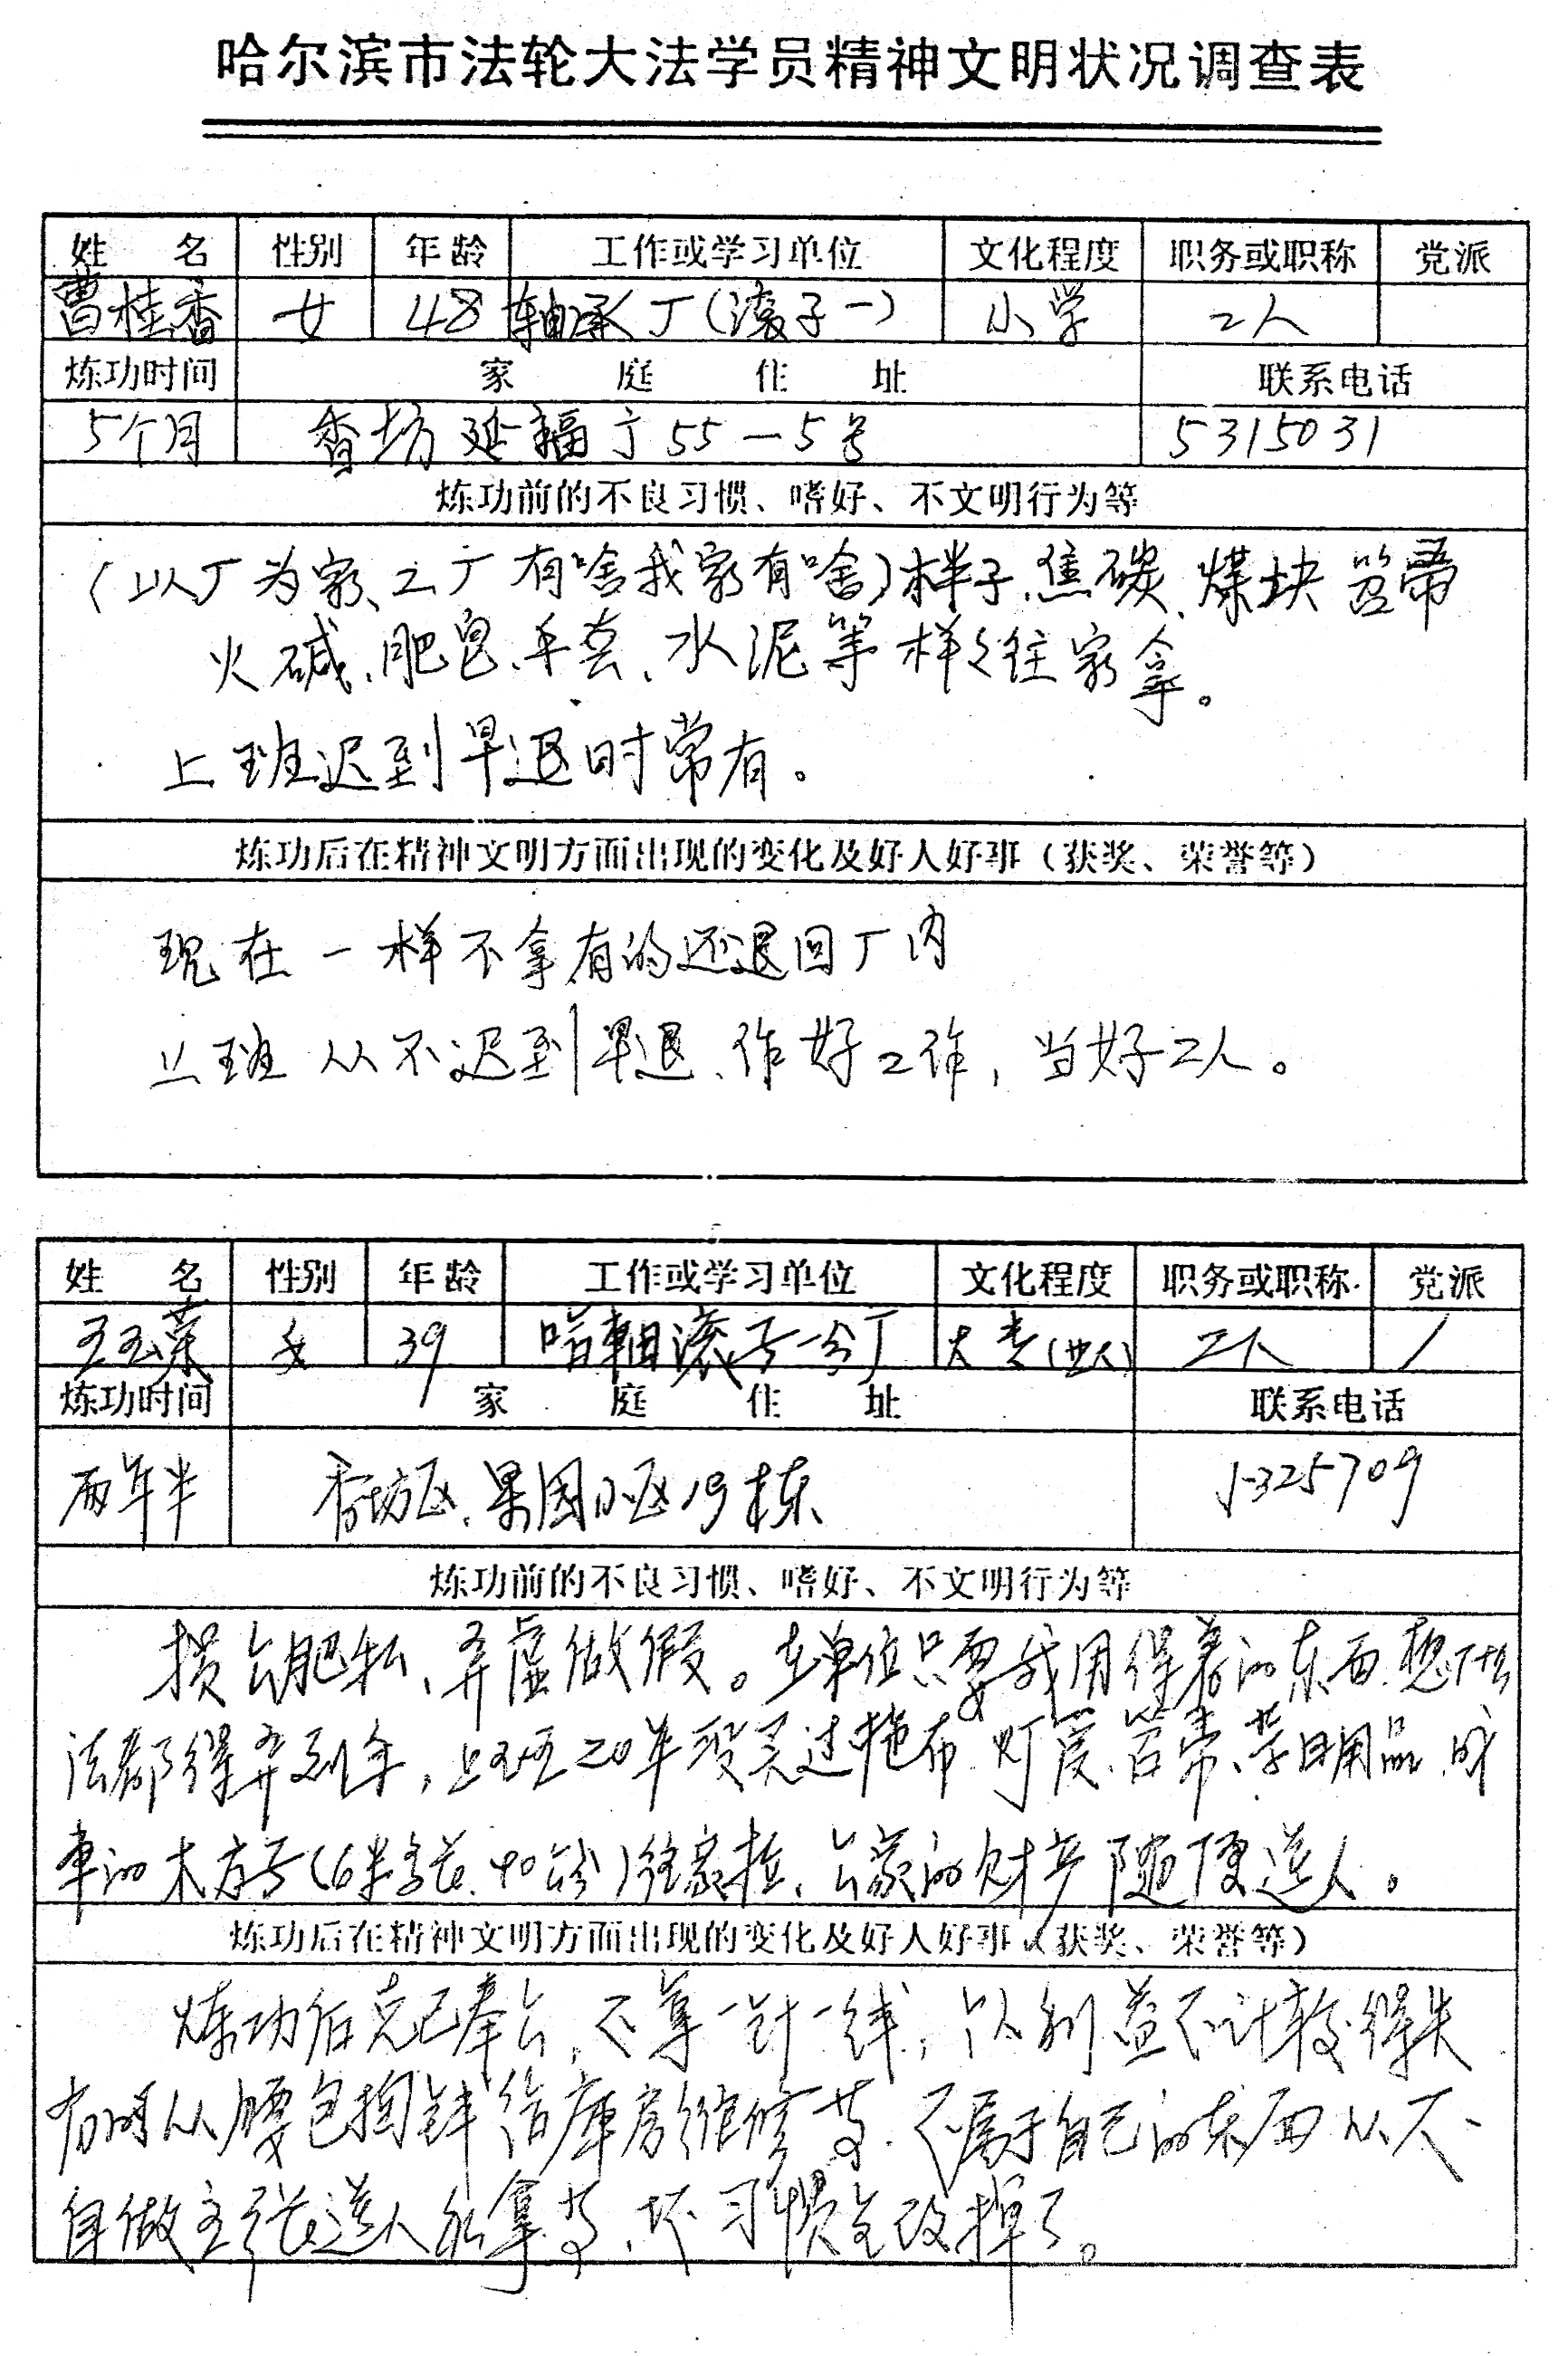 哈尔滨市法轮大法学员精神文明状况调查表
姓 名 性别 年龄 工作或学习单位 文化程度 职务或职称 党派
曹桂香 女 48 轴承厂(滚子一) 小学 工人
炼功时间 家 庭 住 址 联系电话
5个月 香坊延福亍55—5号 5315031
炼功前的不良习惯、嗜好、不文明行为等
(以厂为家、工厂有啥我家有啥)样子、焦碳、煤块 笤帚
火碱、肥皂、手套、水泥等样々往家拿。
上班迟到早退时常有。
炼功后在精神文明方面出现的变化及好人好事(获奖、荣誉等)
现在一样不拿有的还退回厂内
上班从不迟到早退、作好工作,当好工人。
姓 名 性别 年龄 工作或学习单位 文化程度 职务或职称 党派
王玉荣 女 39 哈轴滚子一分厂 大专 工人 /
炼功时间 家 庭 住 址 联系电话
两年半 香坊区、果园小区19栋 5325709
炼功前的不良习惯、嗜好、不文明行为等
损公肥私、弄虚做假。在单位只要我用得着的东西、想方
法都得弄到手,上班20年没买过拖布、灯泡、笤帚、等日用品、成
车的木方子(6米多长、40公分)往家拉、公家的财产随便送人。
炼功后在精神文明方面出现的变化及好人好事(获奖、荣誉等)
炼功后克已奉公,不拿一针一线,个人利益不计较得失
有时从腰包掏钱给库房维修等、不属于自己的东西从不
自做主张送人和拿等、坏习惯全改掉了。